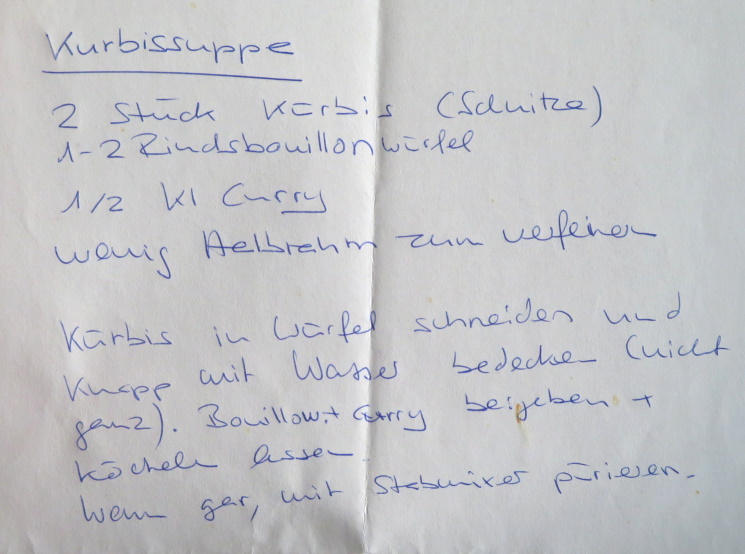 Kürbissuppe
2 Stück Kürbis (Schnitze)
1-2 Rindsbouillonwürfel
1/2 Kl Curry
wenig Halbrahm zum verfeinern
Kürbis in Würfel schneiden und
knapp mit Wasser bedecken (nicht
ganz). Bouillonw. + Curry beigeben +
köcheln lassen.
Wenn gar, mit Stabmixer pürieren.